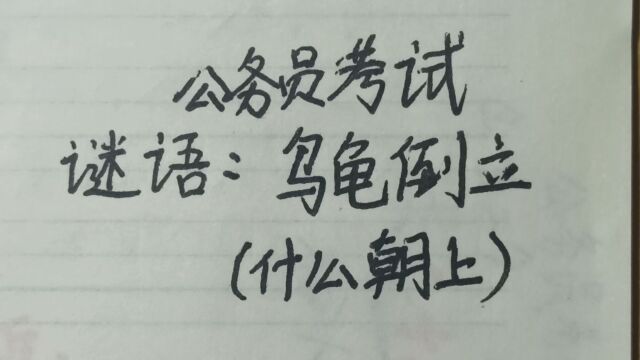 公务员考试
谜语：乌龟倒立
（什么朝上）